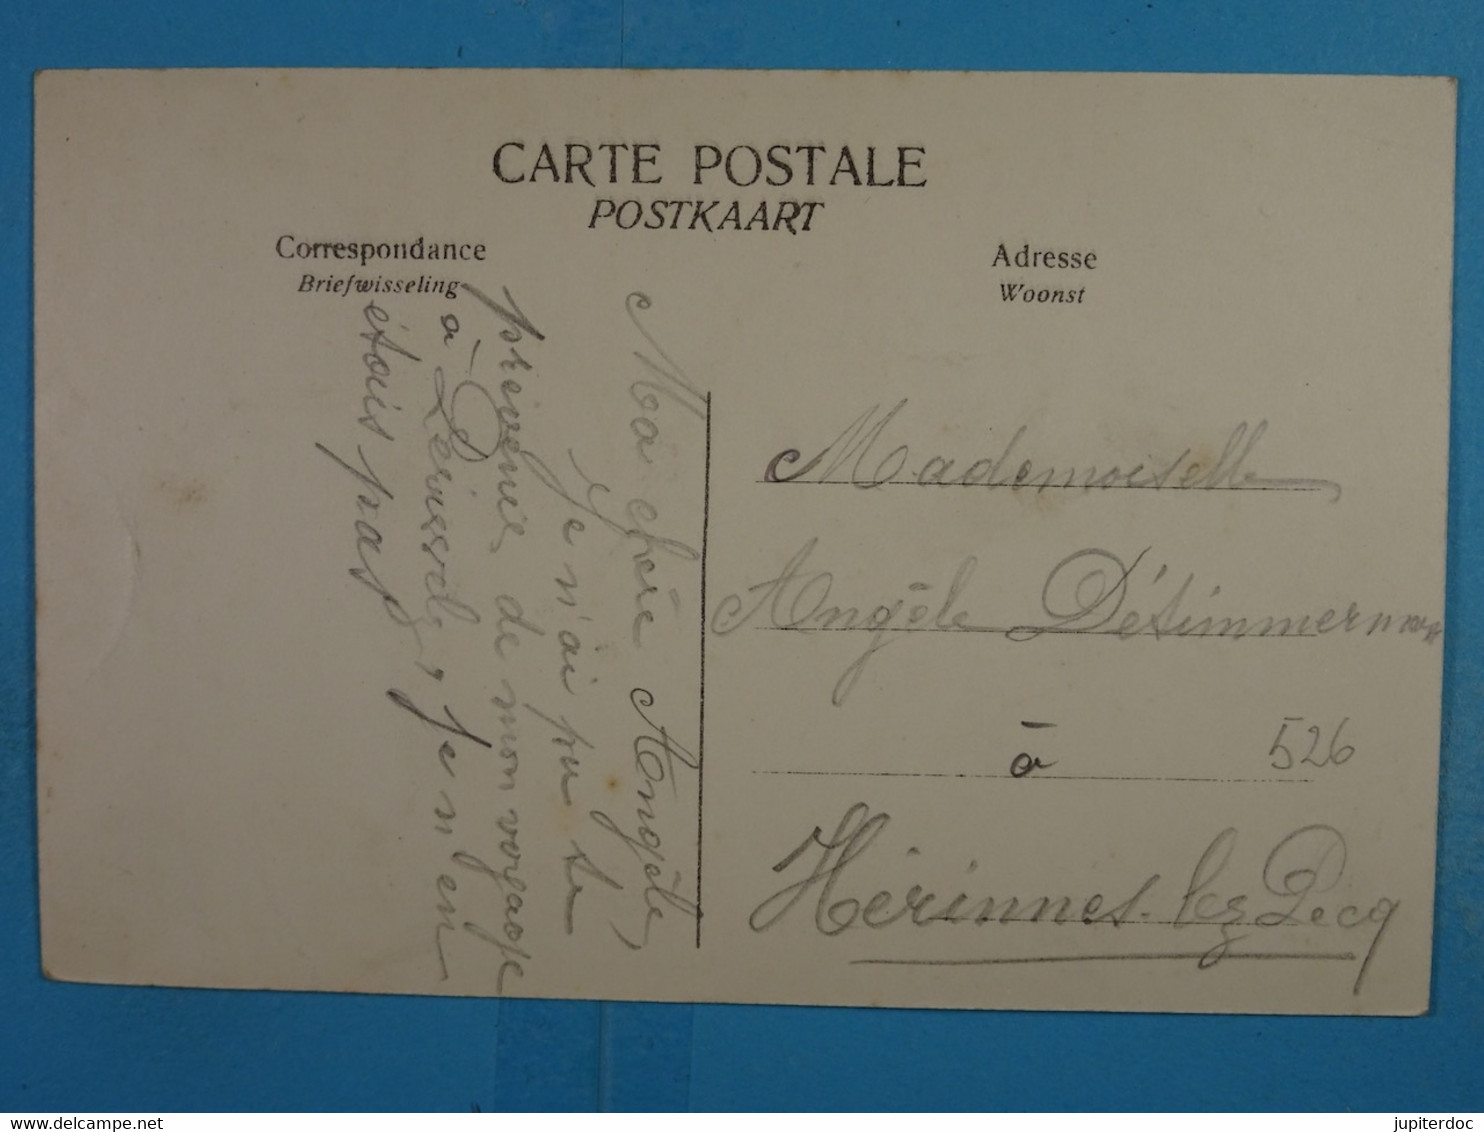 CARTE POSTALE
POSTKAART
Correspondance
Briefwisseling
Adresse
Woonst
Ma chère Angèle,
Je n'ai pu te
prévenir de mon voyage
à , je n'en
étais pas
Mademoiselle
Angèle Détimmerman
à
526
Hérinnes-lez-Pecq
jupiterdoc